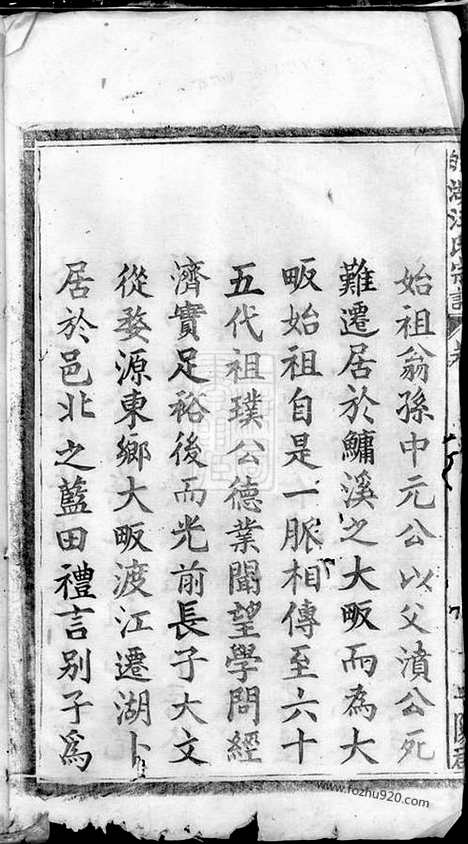 湖汪氏宗譜
始祖翁孫中元公以父濆公死
難遷居於鱅溪之大畈而為大
畈始祖自是一脈相傳至六十
五代祖璞公德業聞望學問經
濟實足裕後而光前長子大文
從婺源東鄉大畈渡江遷湖卜
居於邑北之藍田禮言別子為
www.fozhu920.com